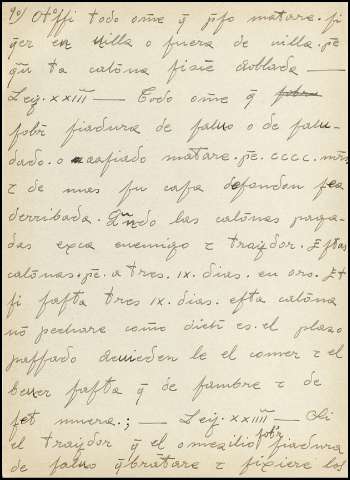 90/ Otossi todo ome q̄ p̄so matare. si
q̄er en uilla o fuera de uilla. pe
q̄u ta calōna sicie doblada ——
Ley. xxiii —— Todo ome q̄ sobre
sobr̄ fiadura de saluo o de salu-
dado. o aafiado matare. pē. cccc. mr̄s
τ de mas su casa defondon sea
derribada. Qn̄do las calōnas paga-
das exca enemigo τ traydor. Estas
calōnas. pē. a tres. ix. dias. en oro. Et
si fasta tres ix. dias. esta calōna
nō pechare comō dich es. el plazo
passado deuieden le el comer τ el
beuer fasta q̄ de fambre τ de
set muera.; —— Ley. xxiiii —— Si
el traydor q̄ el omezilio sobr̄ fiadura
de saluo q̄brātare τ fiziere los